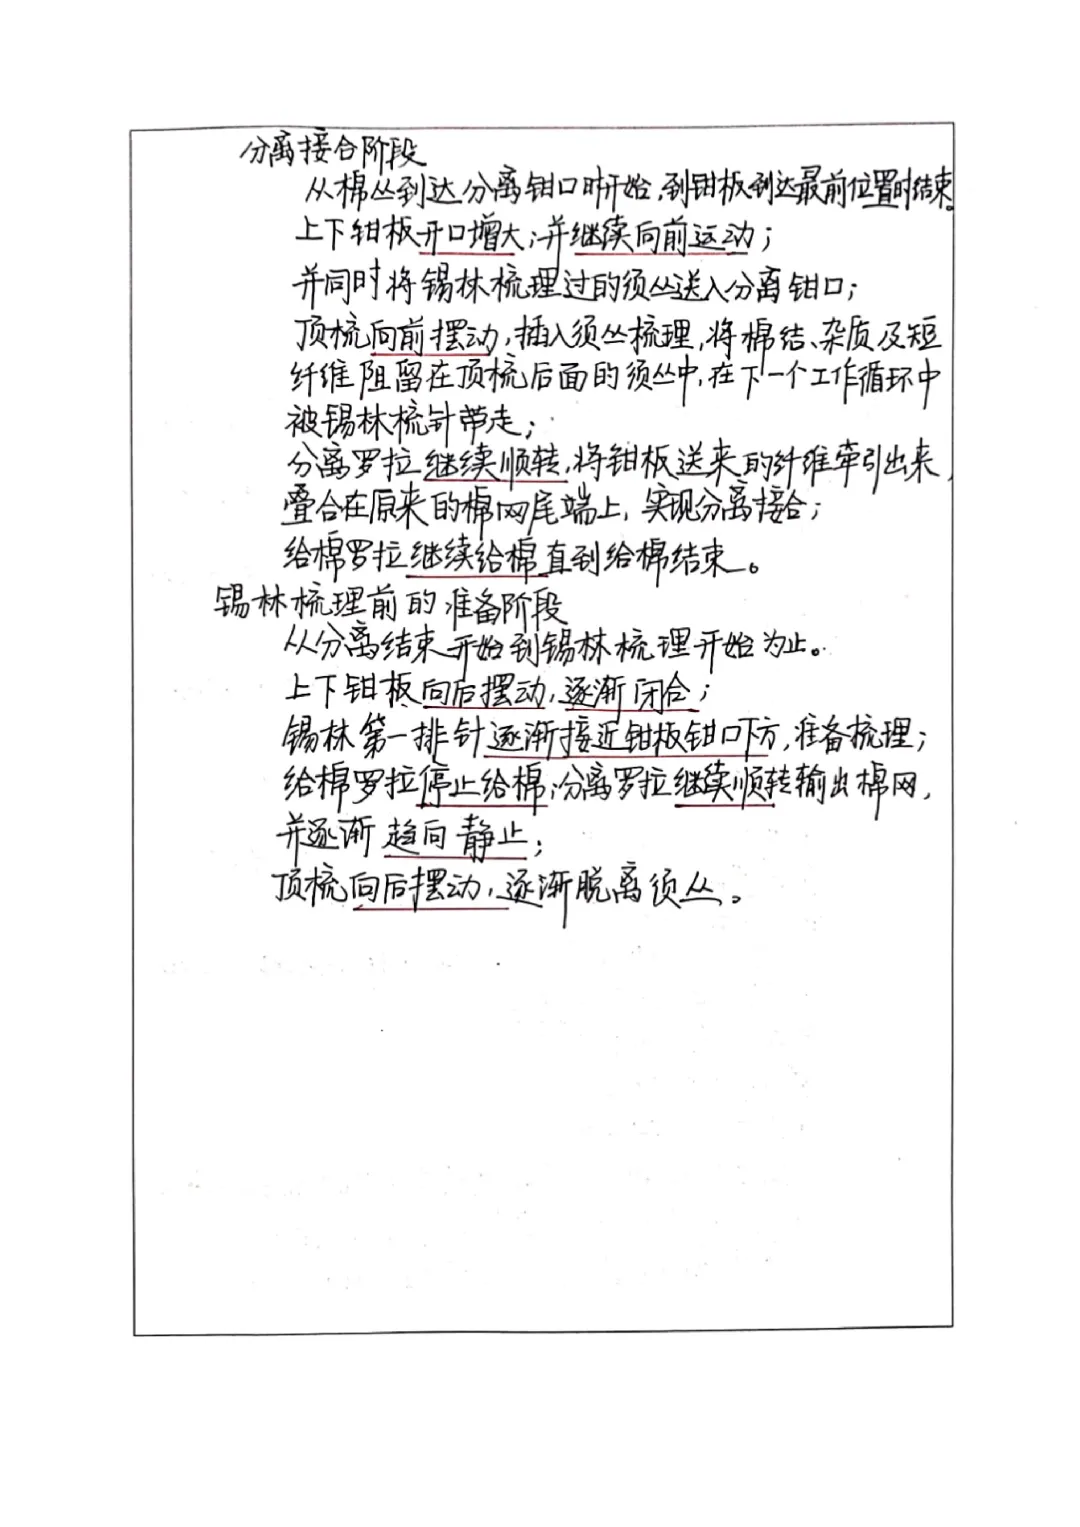 分离接合阶段
从棉丛到达分离钳口时开始,到钳板到达最前位置时结束。
上下钳板开口增大;并继续向前运动;
并同时将锡林梳理过的须丛送入分离钳口;
顶梳向前摆动,插入须丛梳理,将棉结、杂质及短
纤维阻留在顶梳后面的须丛中,在下一个工作循环中
被锡林梳针带走;
分离罗拉继续顺转,将钳板送来的纤维牵引出来,
叠合在原来的棉网尾端上,实现分离接合;
给棉罗拉继续给棉直到给棉结束。
锡林梳理前的准备阶段
从分离结束开始到锡林梳理开始为止。
上下钳板向后摆动,逐渐闭合;
锡林第一排针逐渐接近钳板钳口下方,准备梳理;
给棉罗拉停止给棉;分离罗拉继续顺转输出棉网,
并逐渐趋向静止;
顶梳向后摆动,逐渐脱离须丛。